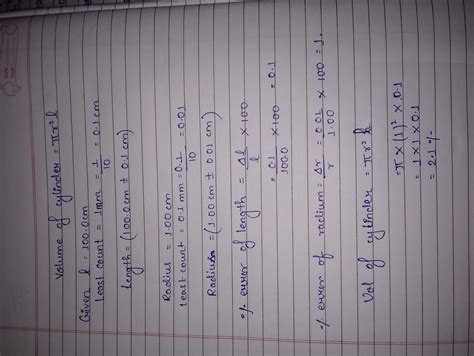 Volume of cylinder = πr²l
Given l = 100.0cm
least count = 1mm = 1/10 = 0.1cm
length = (100.0cm ± 0.1cm)
Radius = 1.00cm
least count = 0.1mm = 0.1/10 = 0.01
Radius = (1.00cm ± 0.01cm)
% error of length = Δl/l × 100
= 0.1/100.0 × 100 = 0.1
% error of radium = Δr/r = 0.01/1.00 × 100 = 1.
Vol of cylinder = πr²h
= π × (1)² × 0.1
= 1 × 1 × 0.1
= 2.1 %